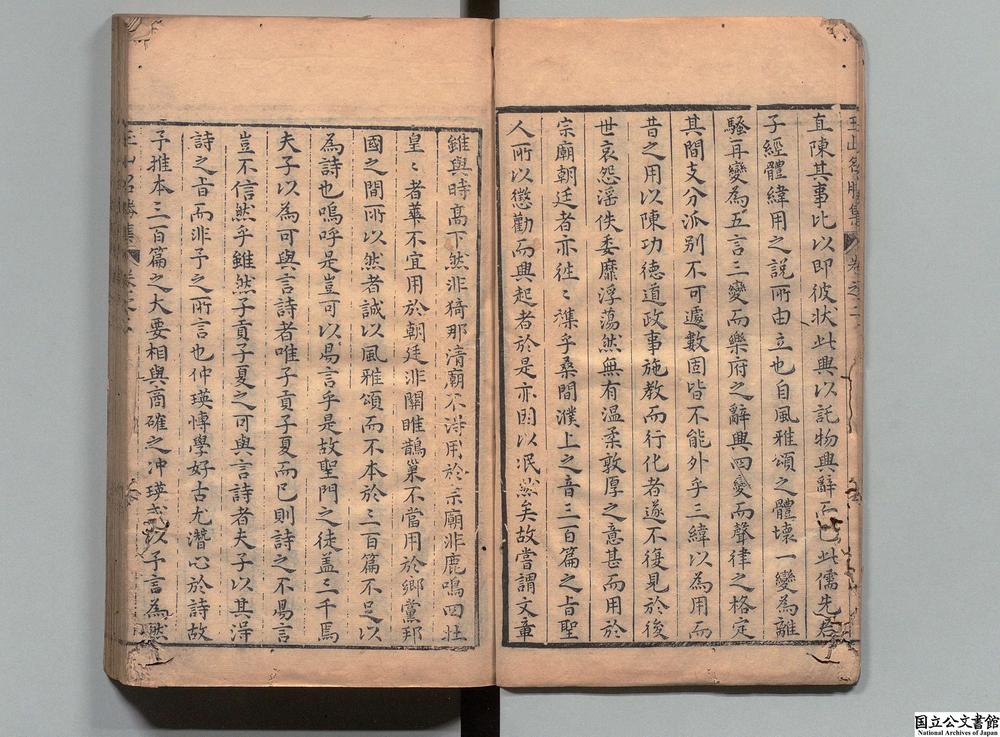 直陳其事比以即彼狀此興以託物興辭而已此儒先君
子經體緯用之說所由立也自風雅頌之體壞一變為離
騷再變為五言三變而樂府之辭興四變而聲律之格定
其間支分派別不可遽數固皆不能外乎三緯以為用而
昔之用以陳功德道政事施教而行化者遂不復見於後
世哀怨滛佚委靡浮蕩然無有温柔敦厚之意甚而用於
宗廟朝廷者亦徃〻襍乎桑間濮上之音三百篇之旨聖
人所以懲勸而興起者於是亦因以泯然矣故嘗謂文章
雖與時髙下然非猗那清廟不淂用於宗廟非鹿鳴四牡
皇〻者華不宜用於朝廷非關雎鵲巢不當用於郷黨邦
國之間所以然者誠以風雅頌而不本於三百篇不足以
為詩也嗚呼是豈可以易言乎是故聖門之徒盖三千焉
夫子以為可與言詩者唯子貢子夏而已則詩之不易言
豈不信然乎雖然子貢子夏之可與言詩者夫子以其淂
詩之旨而非予之所言也仲瑛博學好古尤潛心於詩故
予推本三百篇之大要相與商確之冲瑛或以予言為然
玉山名勝集
卷之
玉山名勝集
卷之
国立公文書館
National Archives of Japan